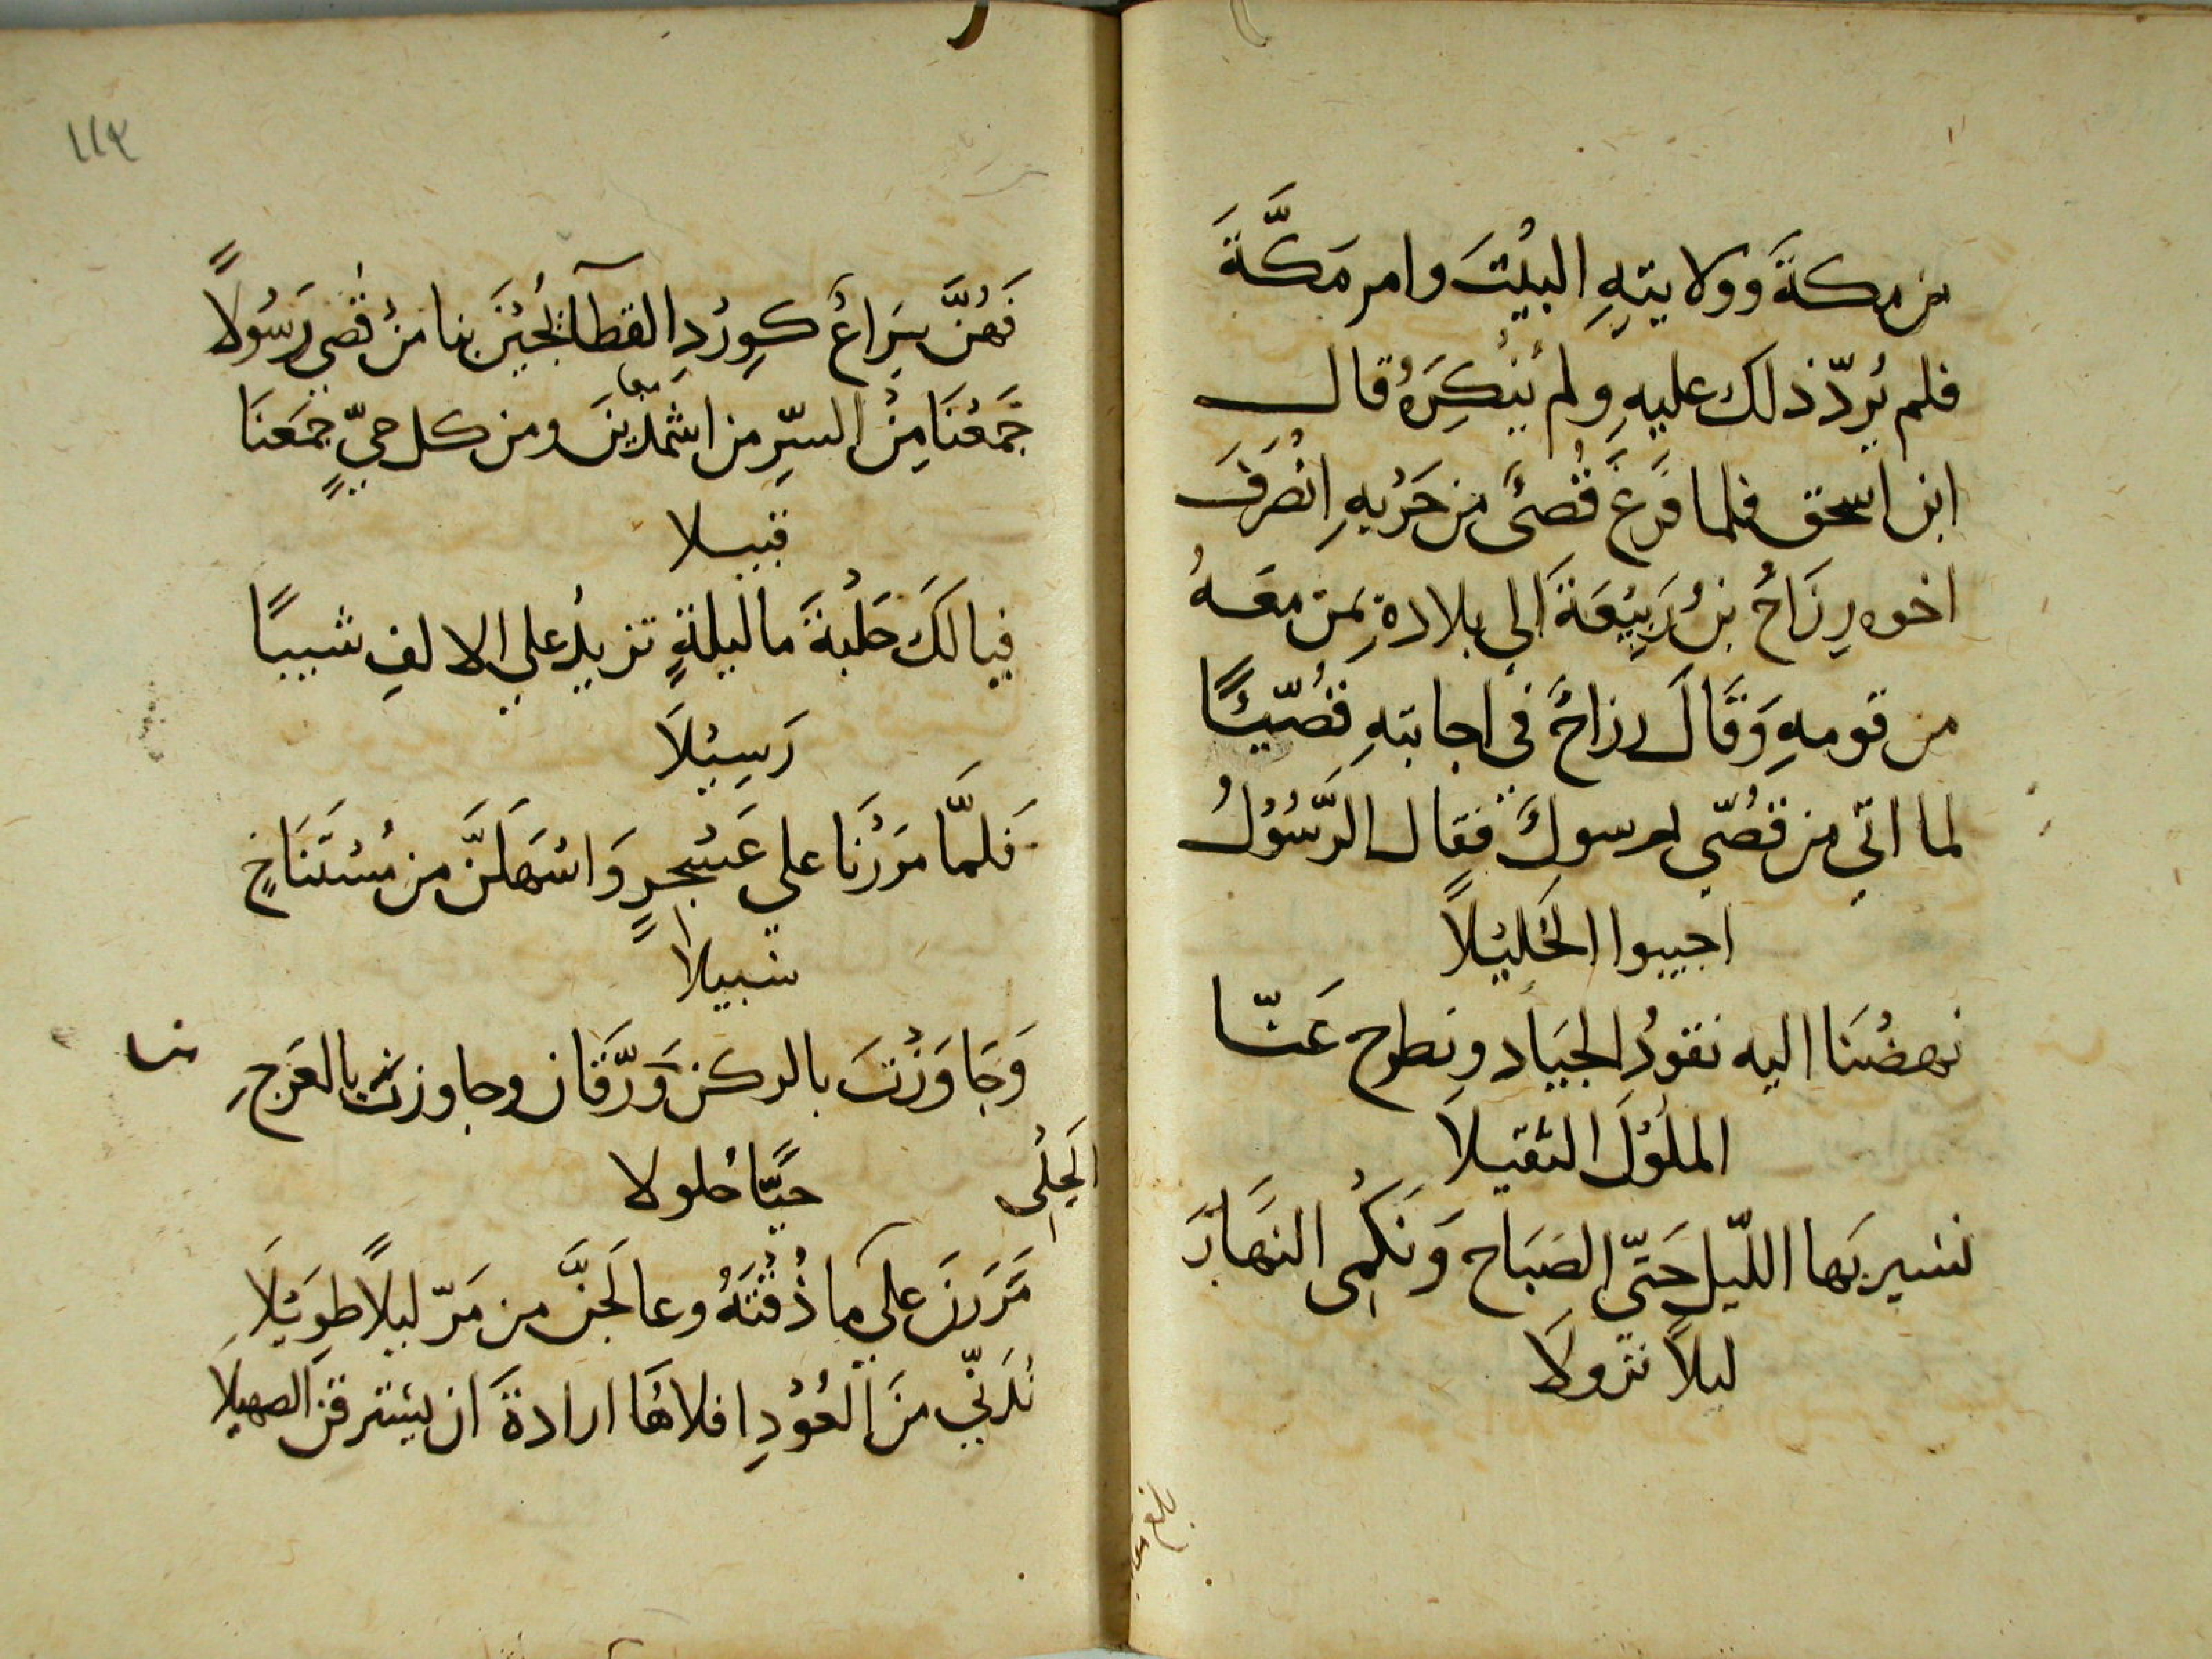 من مكةَ وولايتِهِ البيْتَ وامر مَكَّةَ
فلم يُردّ ذلك عليهِ ولم يُنْكِرَهُ قال
ابن اسحق فلما فَرَغَ قُصَىٌّ من حَرْبِهِ انْصَرَفَ
اخوه رِزَاحُ بنُ رَبِيْعَةَ الي بلادهِ بمَن معَهُ
من قومهِ وَقَالَ رزاحٌ في اجابتهِ قُصّيًّا
لما اتي من قُصّي رسولٌ فقال الرَّسُوْلُ
اجيبوا الخَلِيْلاً
نهضْنَا اليه نقودُ الجيَاد ونطرح عَنّا
الملُوْلَ الثقيلاَ
نسير بهَا اللّيل حَتّي الصَبَاح وَنَكْمِى النهَارَ
ليلاً نزولاَ
بلغ
١١٣
فَهُنَّ سِرَاعٌ كوِرْدِ القطآ يُجِبْنَ بنا منْ قُصَيٍ رَسُولاً
جَمَعْنَا مِنْ السِّرِ من اشْمَذَينَ ومن كل حيٍّ جمَعنَا
قبيلا
فيالكَ حَلْبةَ ما ليلةٍ تزيدُ علي الالفِ شيبًا
رَسِيْلاَ
فَلمَّا مرَرْنَا علي عَسْجرٍ وَاسْهَلَنَّ من مُسْتَنَاخٍ
سبيلا
وَجَاوَزْنَ بالركن وَرَّقَان وجاوزنَ بالعَرَجِ
الجِلْى
حيًّا حُلولا
مَرَرَنَ علي ما ذُقْنَهُ وعالَجنَّ من مَرّ ليلاً طوِيْلاَ
نُدَنّي منَ العُوْدِ افلاءَهَا ارادةَ ان يسْترقنَ الصهيلا